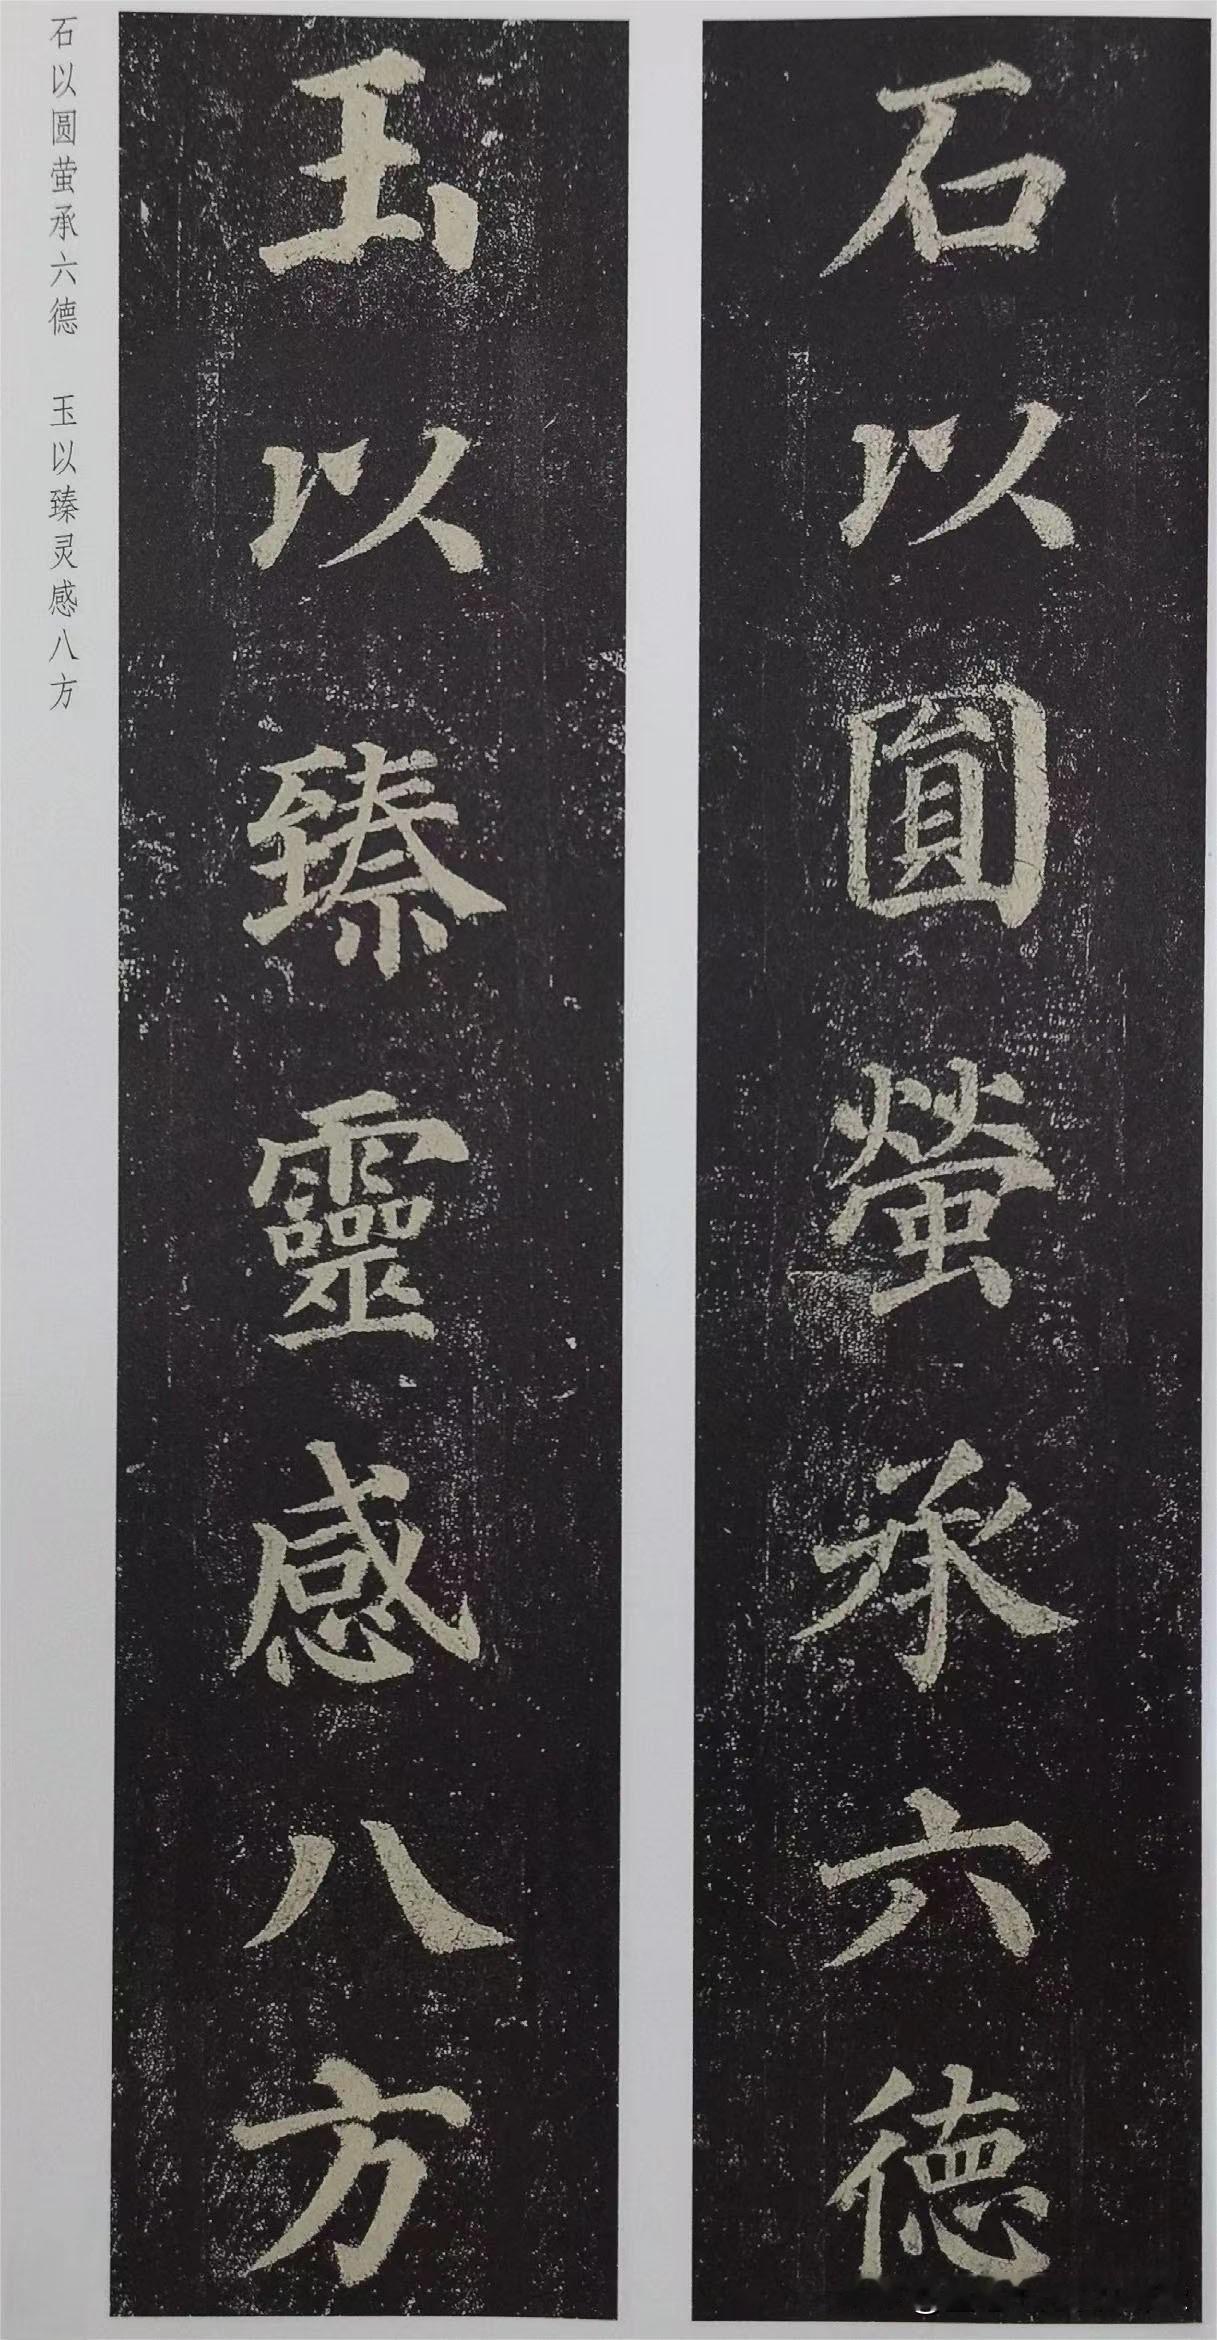 石以圓螢承六德
玉以臻靈感八方
石以圆萤承六德 玉以臻灵感八方